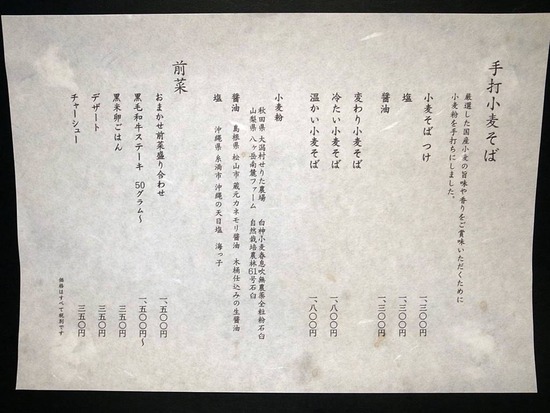 手打小麦そば
厳選した国産小麦の旨味や香りをご賞味いただくために
小麦粉を手打ちにしました。
小麦そば つけ 一、二〇〇円
塩 一、二〇〇円
醤油 一、二〇〇円
変わり小麦そば
冷たい小麦そば 一、八〇〇円
温かい小麦そば 一、八〇〇円
小麦粉
秋田県 大潟村せりた農場 白神小麦春息吹無農薬全粒粉石臼
山梨県 八ヶ岳南麓ファーム 自然栽培農林61号石臼
醤油 島根県 松山市 蔵元カネモリ醤油 木桶仕込みの生醤油
塩 沖縄県 糸満市 沖縄の天日塩 海っ子
前菜
おまかせ前菜盛り合わせ 一、五〇〇円
黒毛和牛ステーキ 50グラム〜 一、五〇〇円〜
黒米卵ごはん 三五〇円
デザート 三五〇円
チャーシュー 三五〇円
価格はすべて税別です